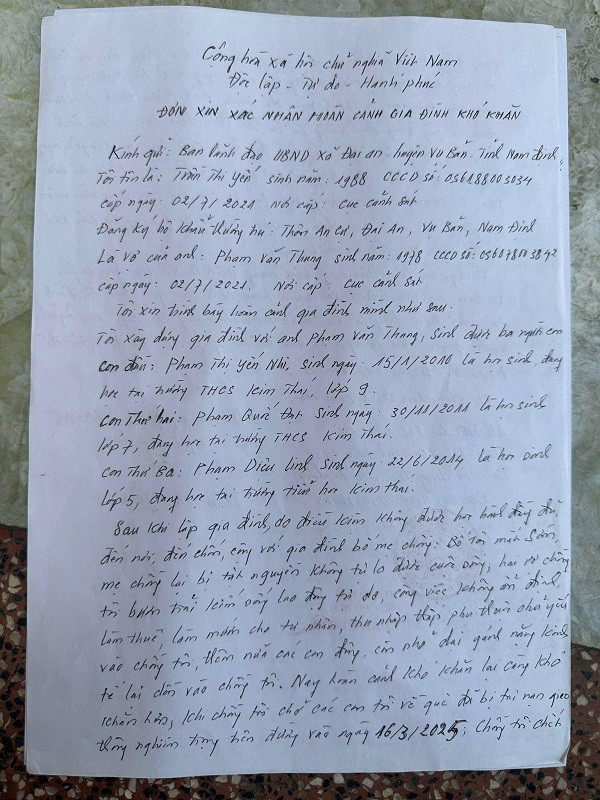 Cộng hoà xã hội chủ nghĩa Việt Nam
Độc lập - Tự do - Hạnh phúc
ĐƠN XIN XÁC NHẬN HOÀN CẢNH GIA ĐÌNH KHÓ KHĂN
Kính gửi: Ban lãnh đạo UBND Xã Đại an - huyện Vụ Bản - Tỉnh Nam định
Tôi tên là: Trần Thị Yến sinh năm: 1988 CCCD số: 036188003034
cấp ngày: 02/7/2021 Nơi cấp: cục cảnh sát
Đăng ký hộ khẩu thường trú: Thôn An Cư, Đại An, Vụ Bản, Nam Định
Là vợ của anh: Phạm Văn Thung sinh năm: 1978 CCCD số: 036078003842
cấp ngày: 02/7/2021. Nơi cấp: cục cảnh sát
Tôi xin trình bày hoàn cảnh gia đình mình như sau.
Tôi xây dựng gia đình với anh Phạm Văn Thung, sinh được ba người con
con đầu: Phạm Thị Yến Nhi, sinh ngày: 15/1/2010 là học sinh, đang
học tại trường THCS Kim Thái, lớp 9
con Thứ hai: Phạm Quốc Đạt sinh ngày: 30/11/2011 là học sinh
lớp 7, đang học tại trường THCS Kim Thái.
con Thứ Ba: Phạm Diệu Linh sinh ngày: 22/6/2014 là học sinh
lớp 5, đang học tại trường tiểu học Kim thái.
Sau khi lập gia đình, do điều kiện không được học hành đầy đủ
đến nơi, đến chốn, cộng với gia đình bố mẹ chồng: Bố tôi mất sớm,
mẹ chồng lại bị tật nguyền không tự lo được cuộc sống, hai vợ chồng
tôi bươn trải kiếm sống lao động tự do, công việc không ổn định,
làm thuê làm mướn cho tư nhân, thu nhập thấp phụ thuộc chủ yếu
vào chồng tôi, thêm nữa các con đông, còn nhỏ dại gánh nặng kinh
tế lại dồn vào chồng tôi. Nay hoàn cảnh khó khăn lại càng khó
khăn hơn, khi chồng tôi chở các con tôi về quê đã bị tai nạn giao
thông nghiêm trọng trên đường vào ngày 16/3/2025; Chồng tôi chết